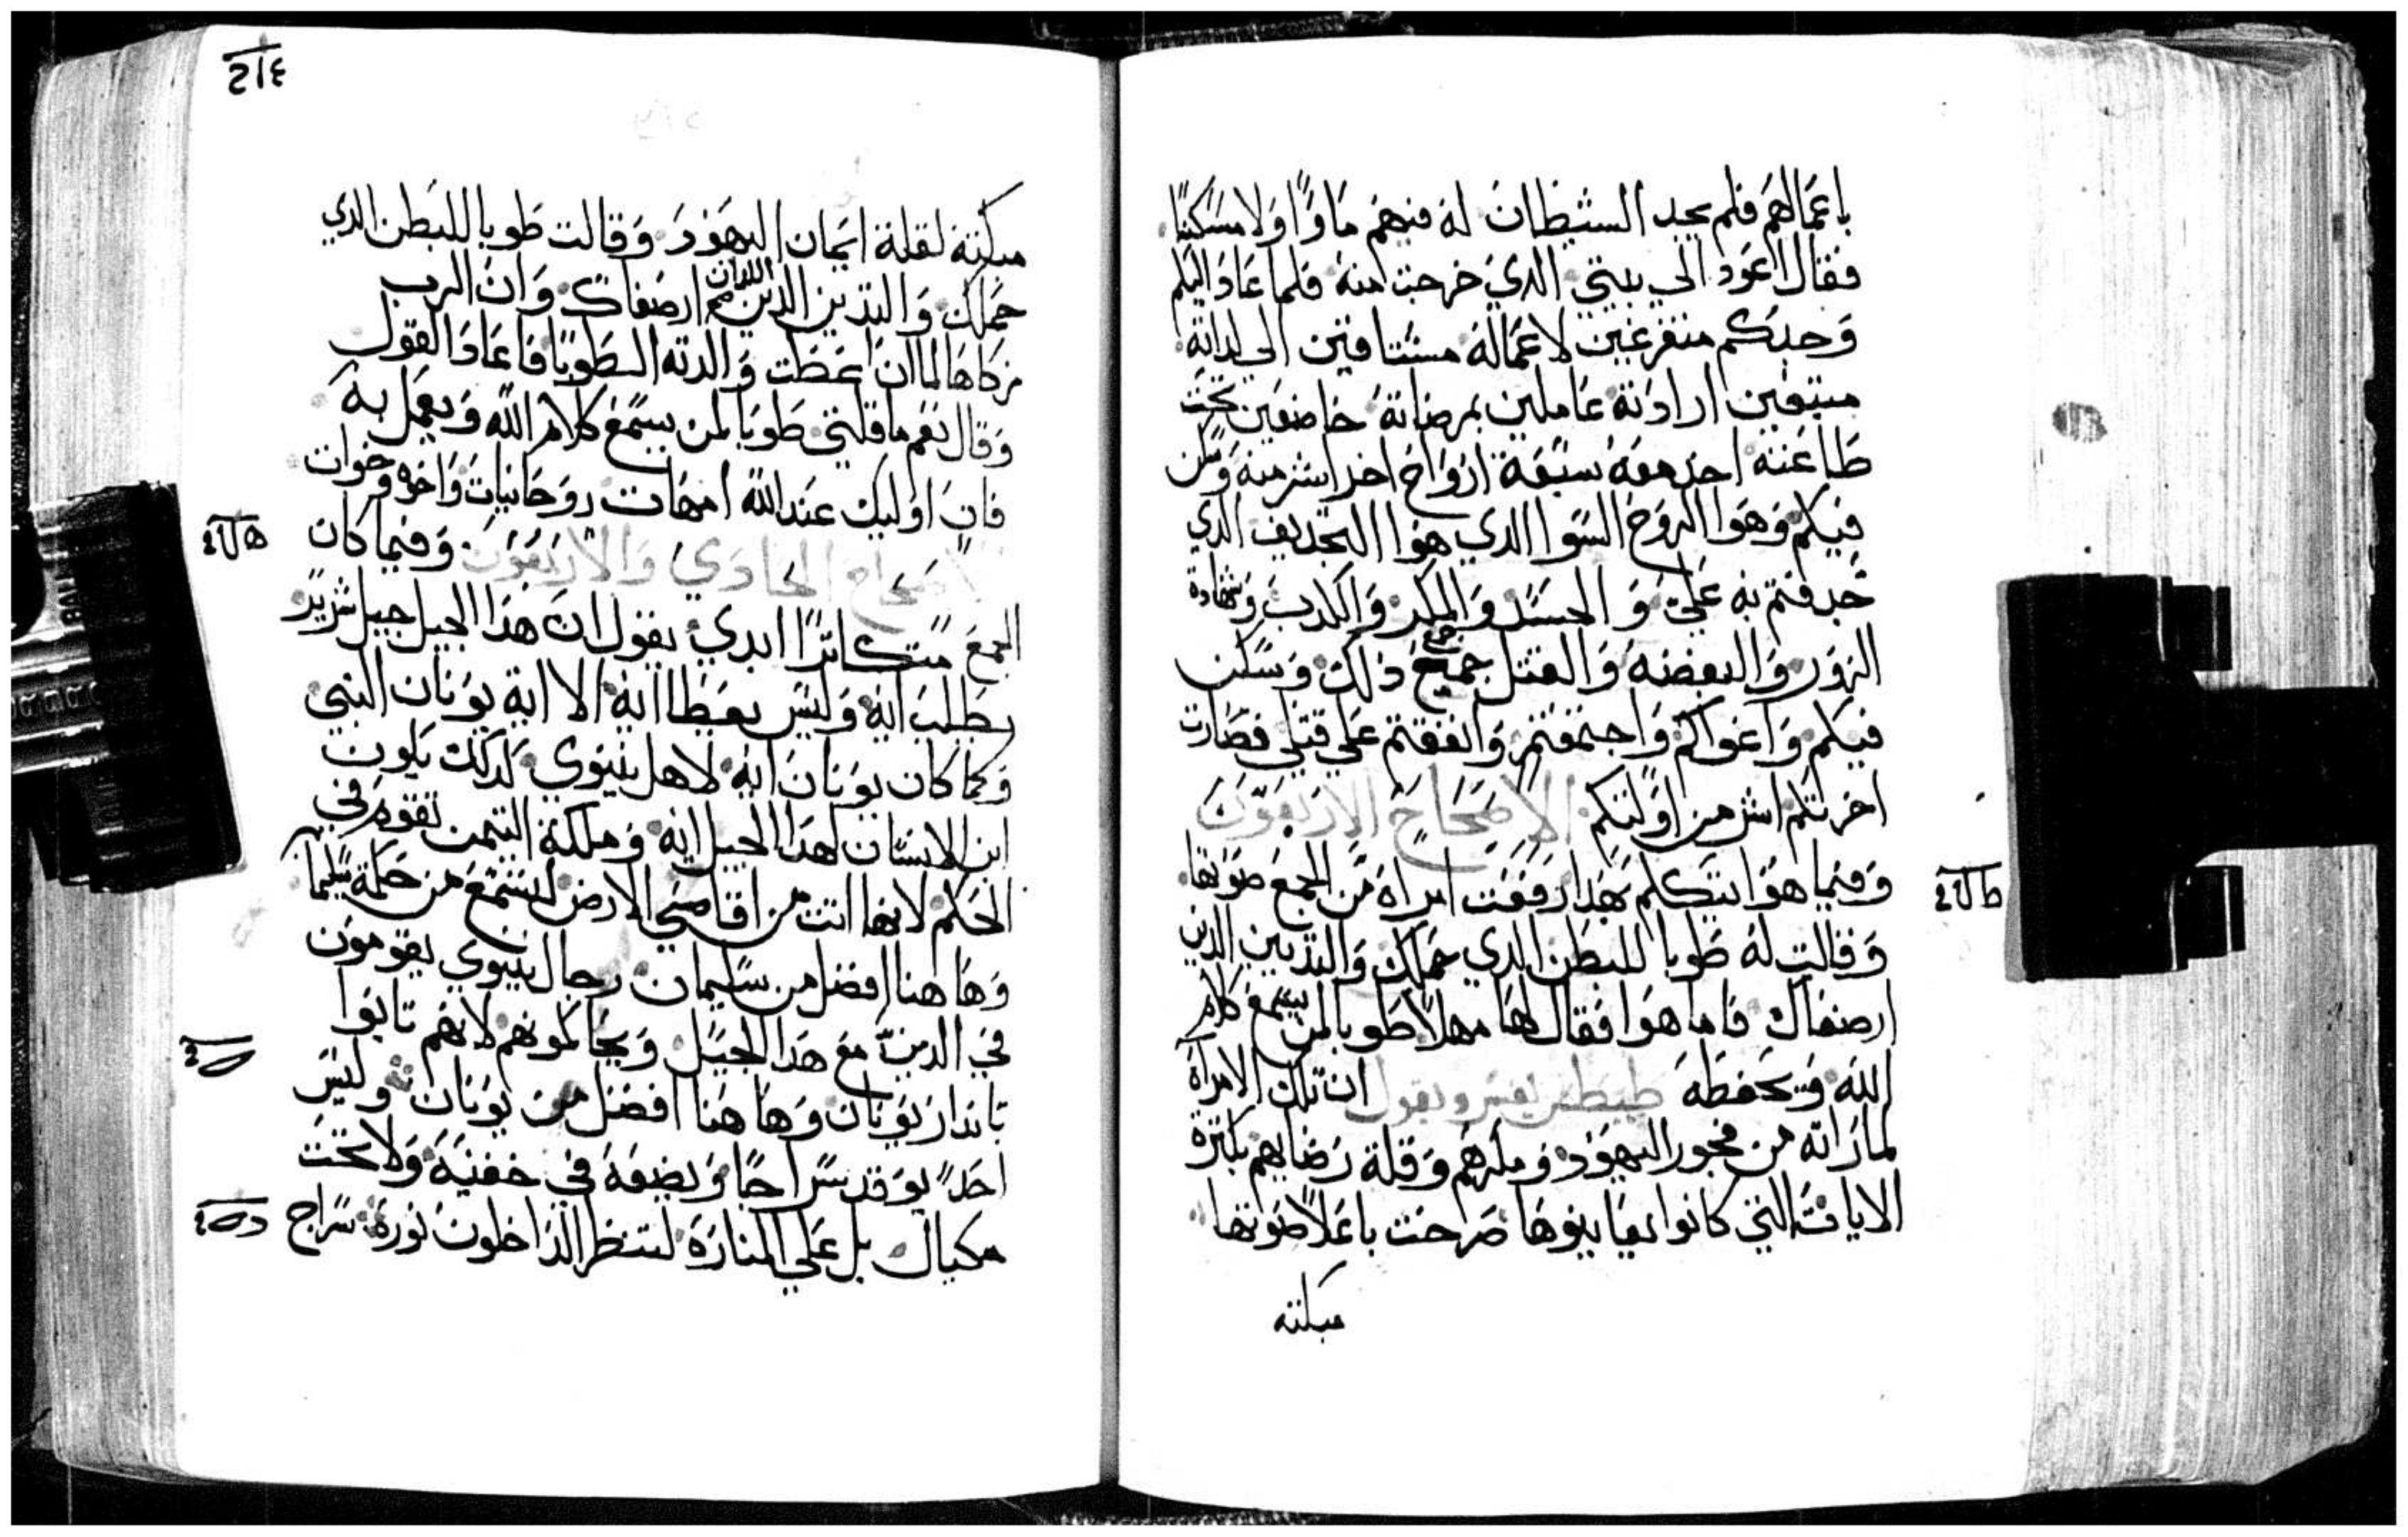 باعمالهم فلم يجد الشيطان له فيهم ماوًا ولا مسكنًا
فقال اعود الي بيتي الدي خرجت منه فلما عاد اليكم
وجدكم متفرغين لاعماله مشتاقين الي لداته
متبعين ارادته عاملين بمرضاته خاضعين تحت
طاعته احد معه سبعة ارواح اخر اشر منه وسكن
فيكم وهوا الروح السوا الدي هوا التجديف الدي
جدفتم به علي والحسد والمكر والكدب وشهادة
الزور والبغضه والقتل جميع دلك وسكن
فيكم واغواكم واجتمعتم واتفقتم علي قتلي فصارت
اخرتكم اشر من اولتكم الاصحاح الاربعون
وفيما هوا يتكلم بهدا رفعت امراه من الجمع صوتها
وقالت له طوبا للبطن الدي حملك والتديين الدين
ارضعاك فاما هوا فقال لها مهلاً طوبا لمن يسمع كلام
الله ويحفظه طيطس يفسر ويقول ان تلك الامراة
لما راته من فجور اليهود ومكرهم وقلة رضاهم بكترة
الايات التي كانوا يعاينوها صرخت باعلا صوتها
مبكته
٢١٤
مبكتة لقلة ايمان اليهود وقالت طوبا للبطن الدي
حملك والتديين الدين اللدان ارضعاك وان الرب
زكاها لما ان اعطت والدته الطوبا فاعاد القول
وقال نعم ما قلتي طوبا لمن يسمع كلام الله ويعمل به
فان اوليك عند الله امهات روحانيات واخوه وخوات
الاصحاح الحادي والاربعون وفيما كان
الجمع متكاترًا ابدي يقول ان هدا الجيل جيل شرير
يطلب ايه وليس يعطا ايه الا اية يونان النبي
وكما كان يونان ايه لاهل نينوي كدلك يكون
ابن الانسان لهدا الجيل ايه وملكة التيمن تقوم في
الحكم لانها اتت من اقاصي الارض لتسمع من حكمة سليمان
وها هنا افضل من سليمان رجال نينوي يقومون
في الدين مع هدا الجيل ويحاكمونهم لانهم تابوا
باندار يونان وها هنا افضل من يونان وليس
احد يوقد سراجًا ويضعه في خفية ولا تحت
مكيال بل علي المنارة لتنظر الداخلون نوره سراج